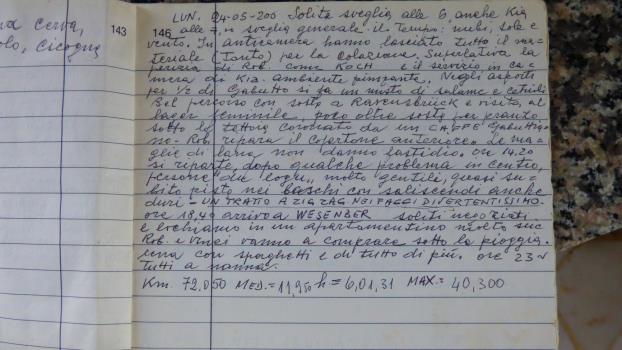 cerva,
olo, cicogna
143
146
LUN. 24-05-200 Solita sveglia alle 6, anche Kia
alle 7, sveglia generale. il Tempo: nubi, sole e
vento. In anticamera hanno lasciato tutto il ma-
teriale (Tanto) per la colazione. Superlativa la
di Rob. come KOCH e il servizio in ca-
mera da Kia. ambiente pimpante. Negli asporti
per 1/2 di Gabutto si fa un misto di salame e cetrioli
Bel percorso con sosta a Ravensbrück e visita al
lager femminile, poco oltre sosta per pranzo
sotto la tettoia coronato da un CAFFÈ Gabuttia-
no- Rob. ripara il copertone anteriore. Le ma-
glie di lana non danno fastidio. ore 14,20
si riparte, dopo qualche problema in centro,
persone del logu, molto gentili, quasi su-
bito pista nei boschi con saliscendi anche
duri - UN TRATTO A ZIG ZAG NEI FAGGI DIVERTENTISSIMO.
ore 18,40 arrivo a WESENBER soliti
e in un appartamentino molto suc
Rob. e vinci vanno a comprare sotto la pioggia.
cena con spaghetti e di tutto di più. ore 23
tutti a nanna.
Km. 72,050 MED.= 11,950 h = 6,01,31 MAX.= 40,300